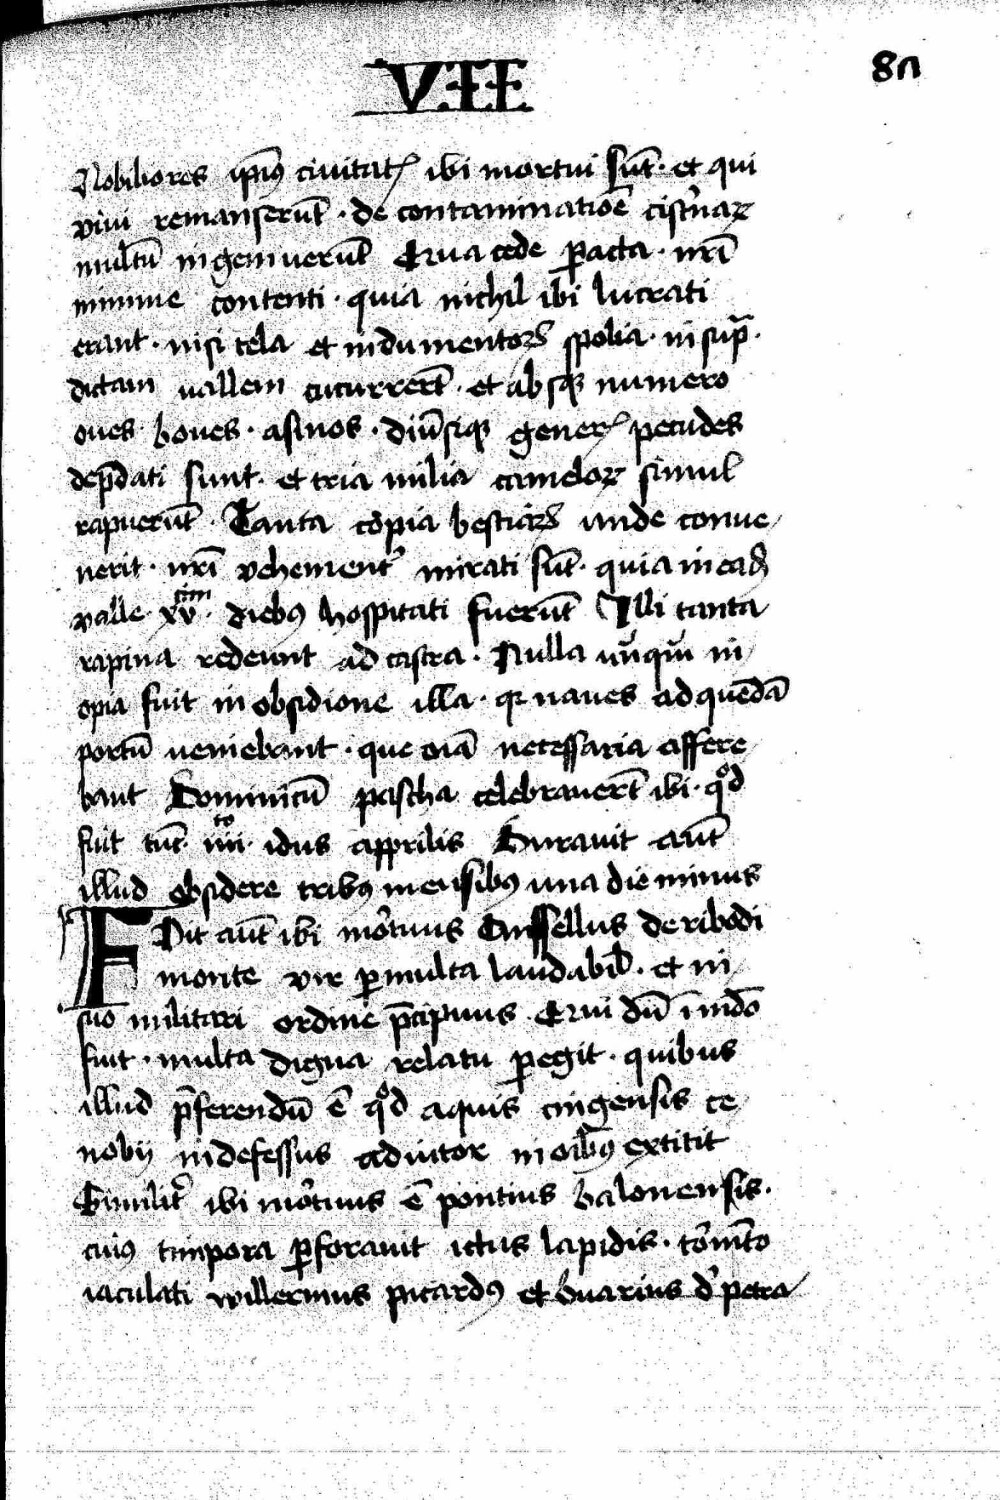 VII
80
Nobiliores ipi̅us ciuitatꝭ ibi mortui su̅t · et qui
viui remanseru̅t · de contaminatio̅e cist̓naꝝ
multu̅ ingemuerūt Qua cede ꝑacta · nr̅i
minime contenti · quia nichil ibi lucrati
erant · nisi tela et indumentoꝝ spolia · in sup̅ ·
dictam vallem cucurrer̅t · et absqꝫ numero
oues · boues · asinos · diu̅siqꝫ generꝭ pecudes
dep̅dati sunt · et tria milia cameloꝝ simul
rapueru̅t · Tanta copia bestiaꝝ unde conue
nerit · nr̅i vehement̓ mirati su̅t · quia in ead̅
valle · xv · cim diebꝰ hospitati fueru̅t Illi tanta
rapina redeunt ad castra · Nulla uu̅qua̅ in
opia fuit in obsidione illa · qꝛ naues ad que̅da̅
portu̅ veniebant · que oi̅a necessaria affere
bant Dominicu̅ pascha celebrauer̅t ibi · qͦd
fuit tu̅c · iiii · to idus apprilis Durauit aut̅
illud obsidere tribꝰ mensibꝰ una die minus
FVit aut̅ ibi mor̓tuus Ansellus de ribodi
monte vir ꝑmulta laudabil̅ · et in
suo militari ordine p̅cipuus Qui du̅ i̅ mu̅do
fuit · multa digna relatu ꝑegit · quibus
illud p̅ferendu̅ e̅ qͦd aquis cingensis ce
nobij indefessus adiutor in oi̅bꝰ extitit
Similit̓ ibi mor̓tuus e̅ pontius balonensis ·
cuiꝰ timpora ꝑforauit ictus lapidis · tor̓me̅to
iaculati willermus picardꝰ et Guarius d̓ petra